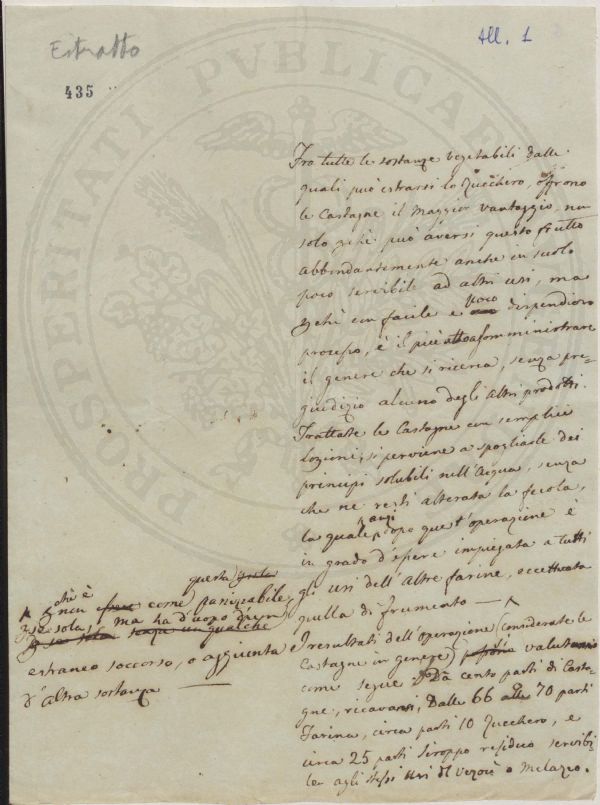 Estratto
All. 1
435
PROSPERITATI PUBLICAE
Fra tutte le sostanze vegetabili dalle
quali può estrarsi lo Zucchero, offrono
le Castagne il maggior vantaggio, non
solo pchè può aversi questo frutto
abbondantemente anche in suolo
poco servibile ad altri usi, ma
pchè con facile e poco dispendioso
processo, è il più atto a somministrare
il genere che si ricerca, senza pre=
giudizio alcuno degli altri prodotti.
Trattate le Castagne con semplici
lozioni, si perviene a spogliarle dei
principj solubili nell'Acqua, senza
che ne resti alterata la fecola,
la quale anzi dopo quest'operazione è
in grado d'essere impiegata a tutti
gli usi dell'altre farine, eccettuata
quella di frumento — ^
I resultati dell'operazione (considerate le
Castagne in genere) valutansi
come segue. Da cento parti di Casta=
gne, ricavansi, Dalle 66 alle 70 parti
Farina, circa parti 10 Zucchero, e
circa 25 parti Siroppo residuo servibi
le agli stessi usi
o Melazzo.
^ chè è
non come questa
panizzabile
p se sola, ma ha d'uopo d'un
estraneo soccorso, o aggiunta
d'altra sostanza —